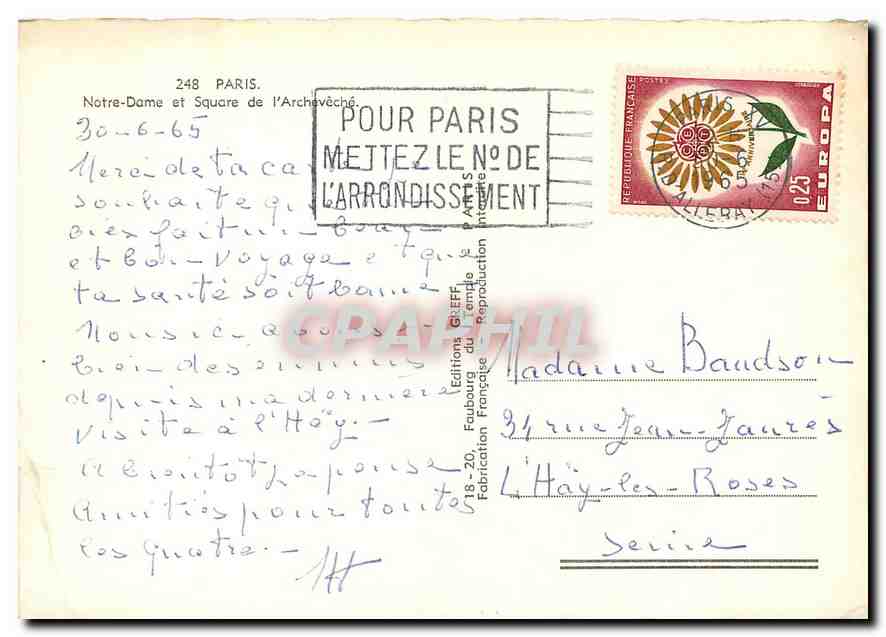 248 PARIS.
Notre-Dame et Square de l'Archevêché.
30-6-65
Merci de ta
souhaite
aies fait un beau
et bon voyage et que
ta santé soit bonne
Nous
bien des ennuis
depuis ma dernière
visite à l'Häy.-
A bientôt je pense
Amitiés pour toutes
les quatre.-
POUR PARIS
METTEZ LE No DE
L'ARRONDISSEMENT
REPUBLIQUE-FRANÇAISE
POSTES
EUROPA
0,25
PARIS
ALLERAY (15e)
Editions GREFF
18 - 20, Faubourg du Temple PARIS
Fabrication Française - Reproduction Interdite
CPAPHIL
Madame Baudson
34 rue Jean-Jaurès
L'Häy-les-Roses
Seine